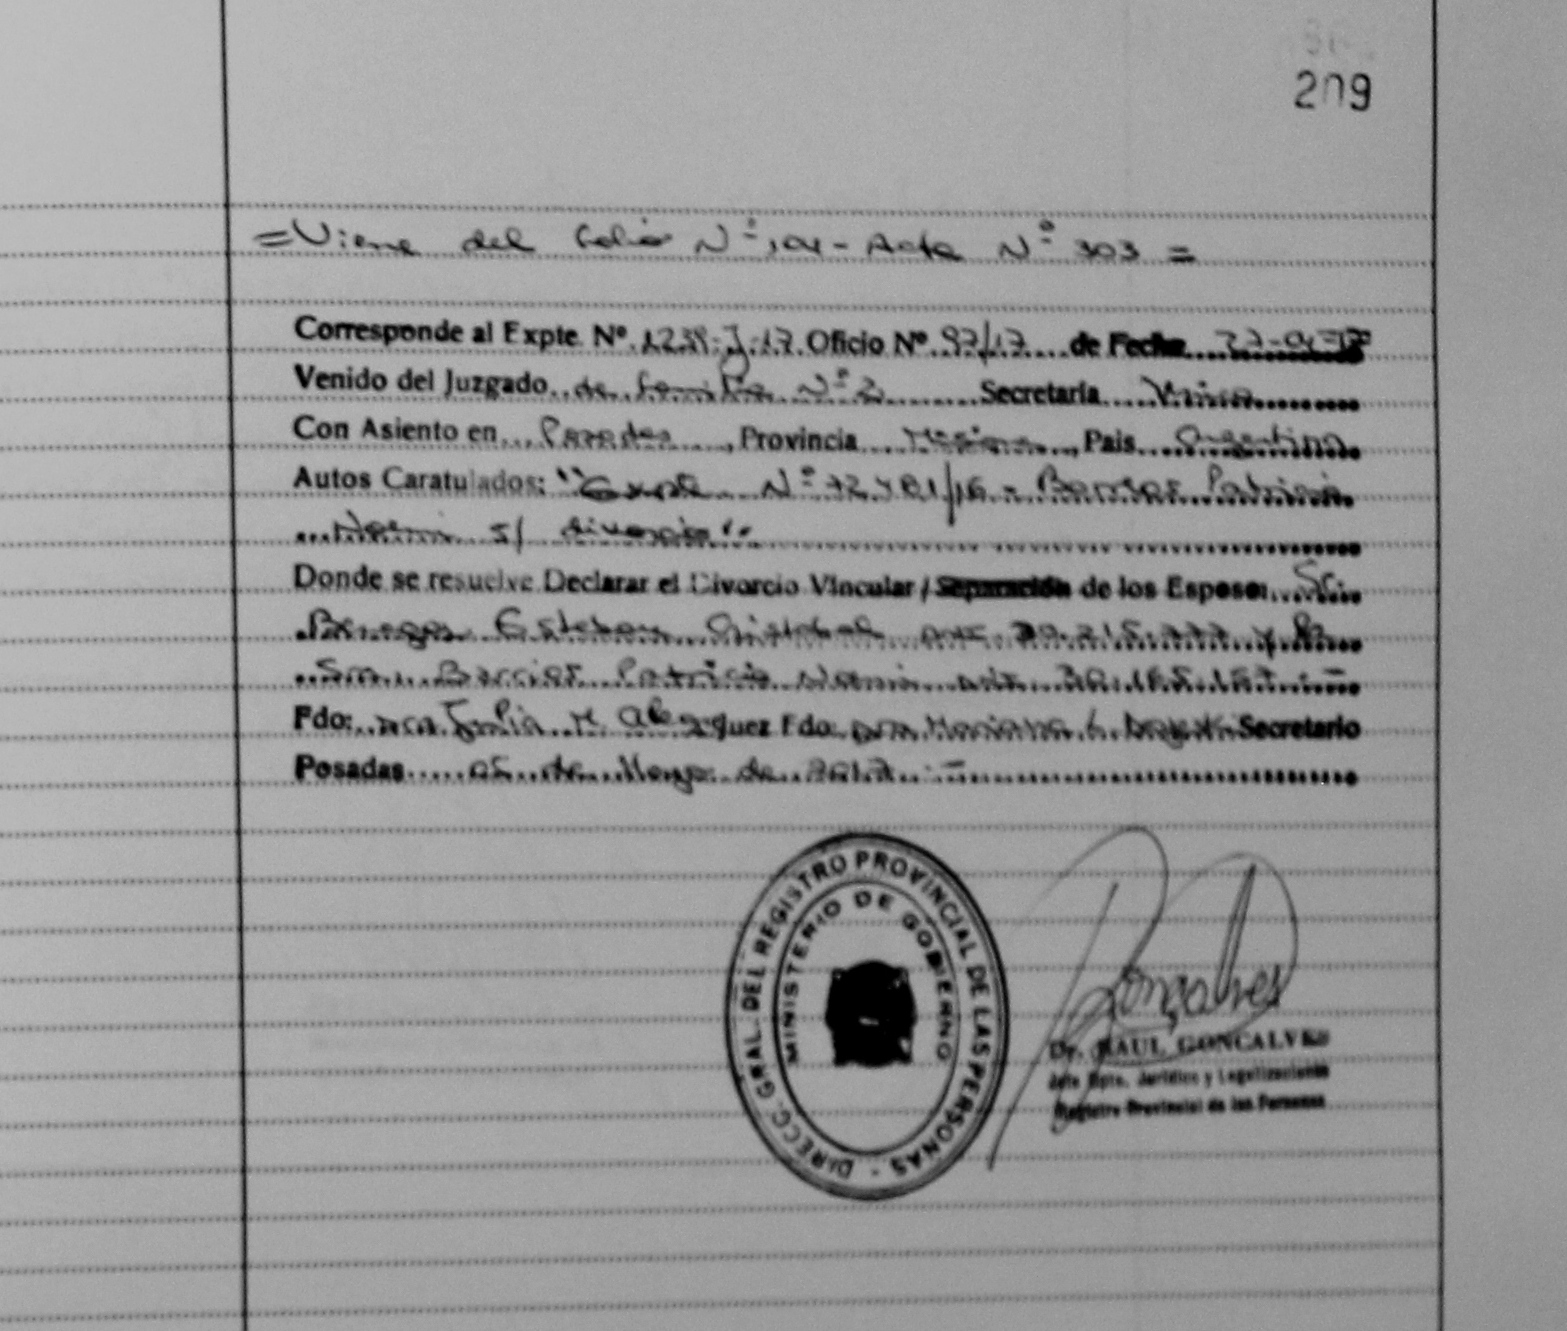 209
= Viene del folio Nº 104 - Acta Nº 303 =
Corresponde al Expte Nº 1238-J-17 Oficio Nº 97/17 de Fecha 27-04-17
Venido del Juzgado de familia Nº 2 Secretaría Unica
Con Asiento en Posadas, Provincia Misiones, Pais Argentina
Autos Caratulados: "Expte Nº 72481/16 - Barrios Patricia
Noemi s/ divorcio"
Donde se resuelve Declarar el Divorcio Vincular / Separación de los Esposos Sr.
Esteban Cristobal DNI y la
Sra. Barrios Patricia Noemi DNI
Fdo: Dra Julia M Juez Fdo: Dra Mariana Secretario
Posadas 05 de Mayo de 2017.-
DIRECC. GRAL. DEL REGISTRO PROVINCIAL DE LAS PERSONAS -
MINISTERIO DE GOBIERNO
Gonçalves
Dr. RAUL GONCALVES
Jefe Dpto. Jurídico y Legalizaciones
Registro Provincial de las Personas